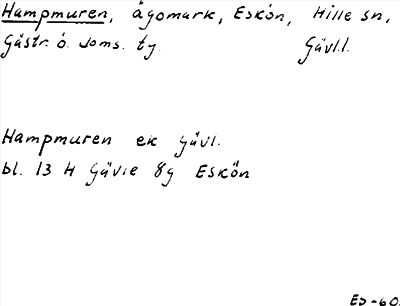 Hampmuren, ägomark, Eskön, Hille sn,
Gästr. ö. doms. tg. Gävl.l.
Hampmuren ek Gävl.
bl. 13 H Gävle 8g Eskön
ED-60.